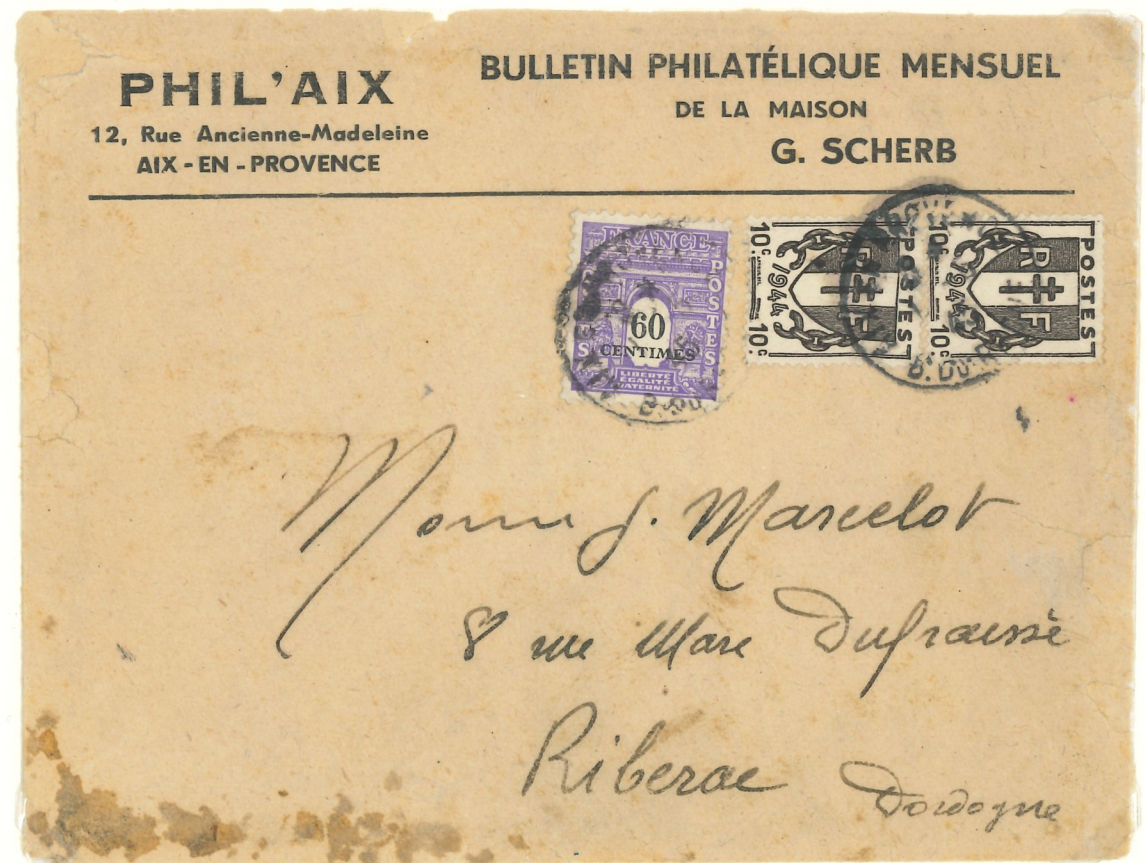 PHIL'AIX
12, Rue Ancienne-Madeleine
AIX-EN-PROVENCE
BULLETIN PHILATÉLIQUE MENSUEL
DE LA MAISON
G. SCHERB
FRANCE
POSTES
60
CENTIMES
LIBERTÉ
ÉGALITÉ
FRATERNITÉ
10c 1944 10c
RF
POSTES
10c 1944 10c
RF
POSTES
J. Marcelot
8 rue Marc Dufraisse
Riberac
Dordogne